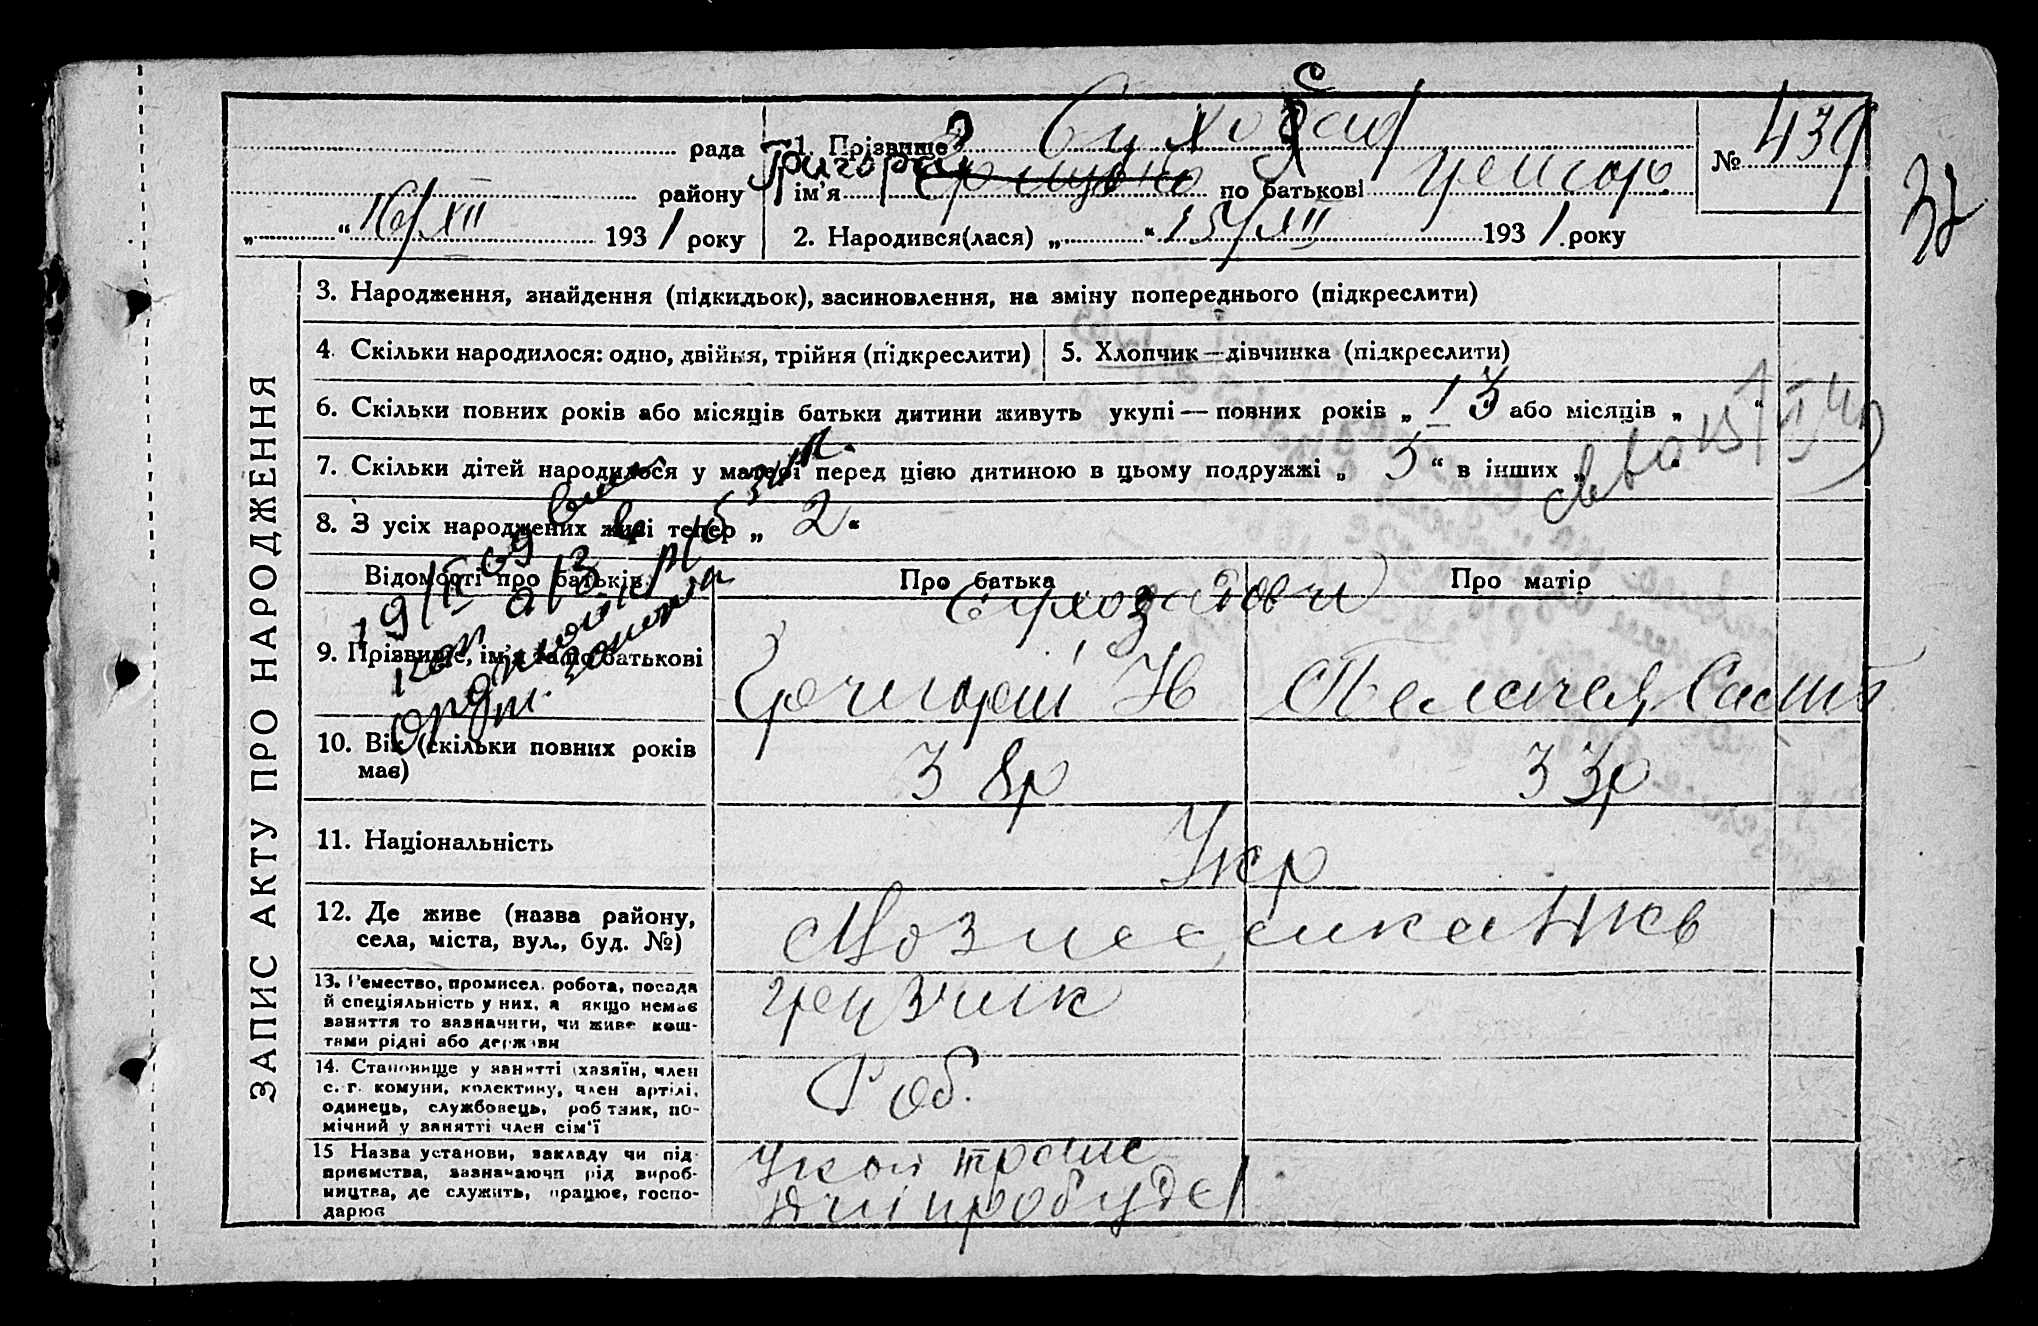 рада
району
„ “ 16/XII 1931 року
1. Прізвище
Григорій
ім’я по батькові Григор
2. Народився(лася) „ “ 15/XII 1931 року
№ 439
37
ЗАПИС АКТУ ПРО НАРОДЖЕННЯ
3. Народження, знайдення (підкидьок), засиновлення, на зміну попереднього (підкреслити)
4. Скільки народилося: одно, двійня, трійня (підкреслити)
5. Хлопчик—дівчинка (підкреслити)
6. Скільки повних років або місяців батьки дитини живуть укупі — повних років „ 13 “ або місяців „ “
7. Скільки дітей народилося у матері перед цією дитиною в цьому подружжі „ 3 “ в інших „ “
8. З усіх народжених живі тепер „ 2 “
Відомості про батьків:
Про батька
Про матір
9. Прізвище, ім’я та по батькові
Григорій Н
Пелагея
10. Вік (скільки повних років має)
38р
33р
11. Національність
Укр
12. Де живе (назва району, села, міста, вул., буд. №)
Вознесенка
13. Ремество, промисел, робота, посада й спеціяльність у них, а якщо немає заняття то зазначити, чи живе коштами рідні або держави
грузчик
14. Становище у занятті (хазяїн, член с.-г. комуни, колективу, член артілі, одинець, службовець, робітник, помічний у занятті член сім’ї
Роб.
15 Назва установи, закладу чи підприємства, зазначаючи рід виробництва, де служить, працює, господарює
транс
Дніпробуде